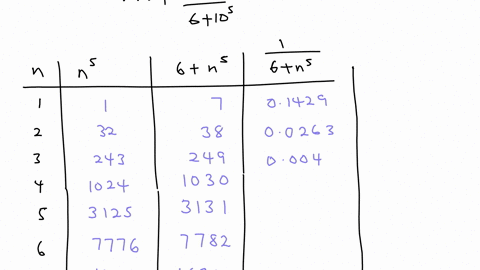 6+10⁵
n n⁵ 6+n⁵ 1/(6+n⁵)
1 1 7 0.1429
2 32 38 0.0263
3 243 249 0.004
4 1024 1030
5 3125 3131
6 7776 7782